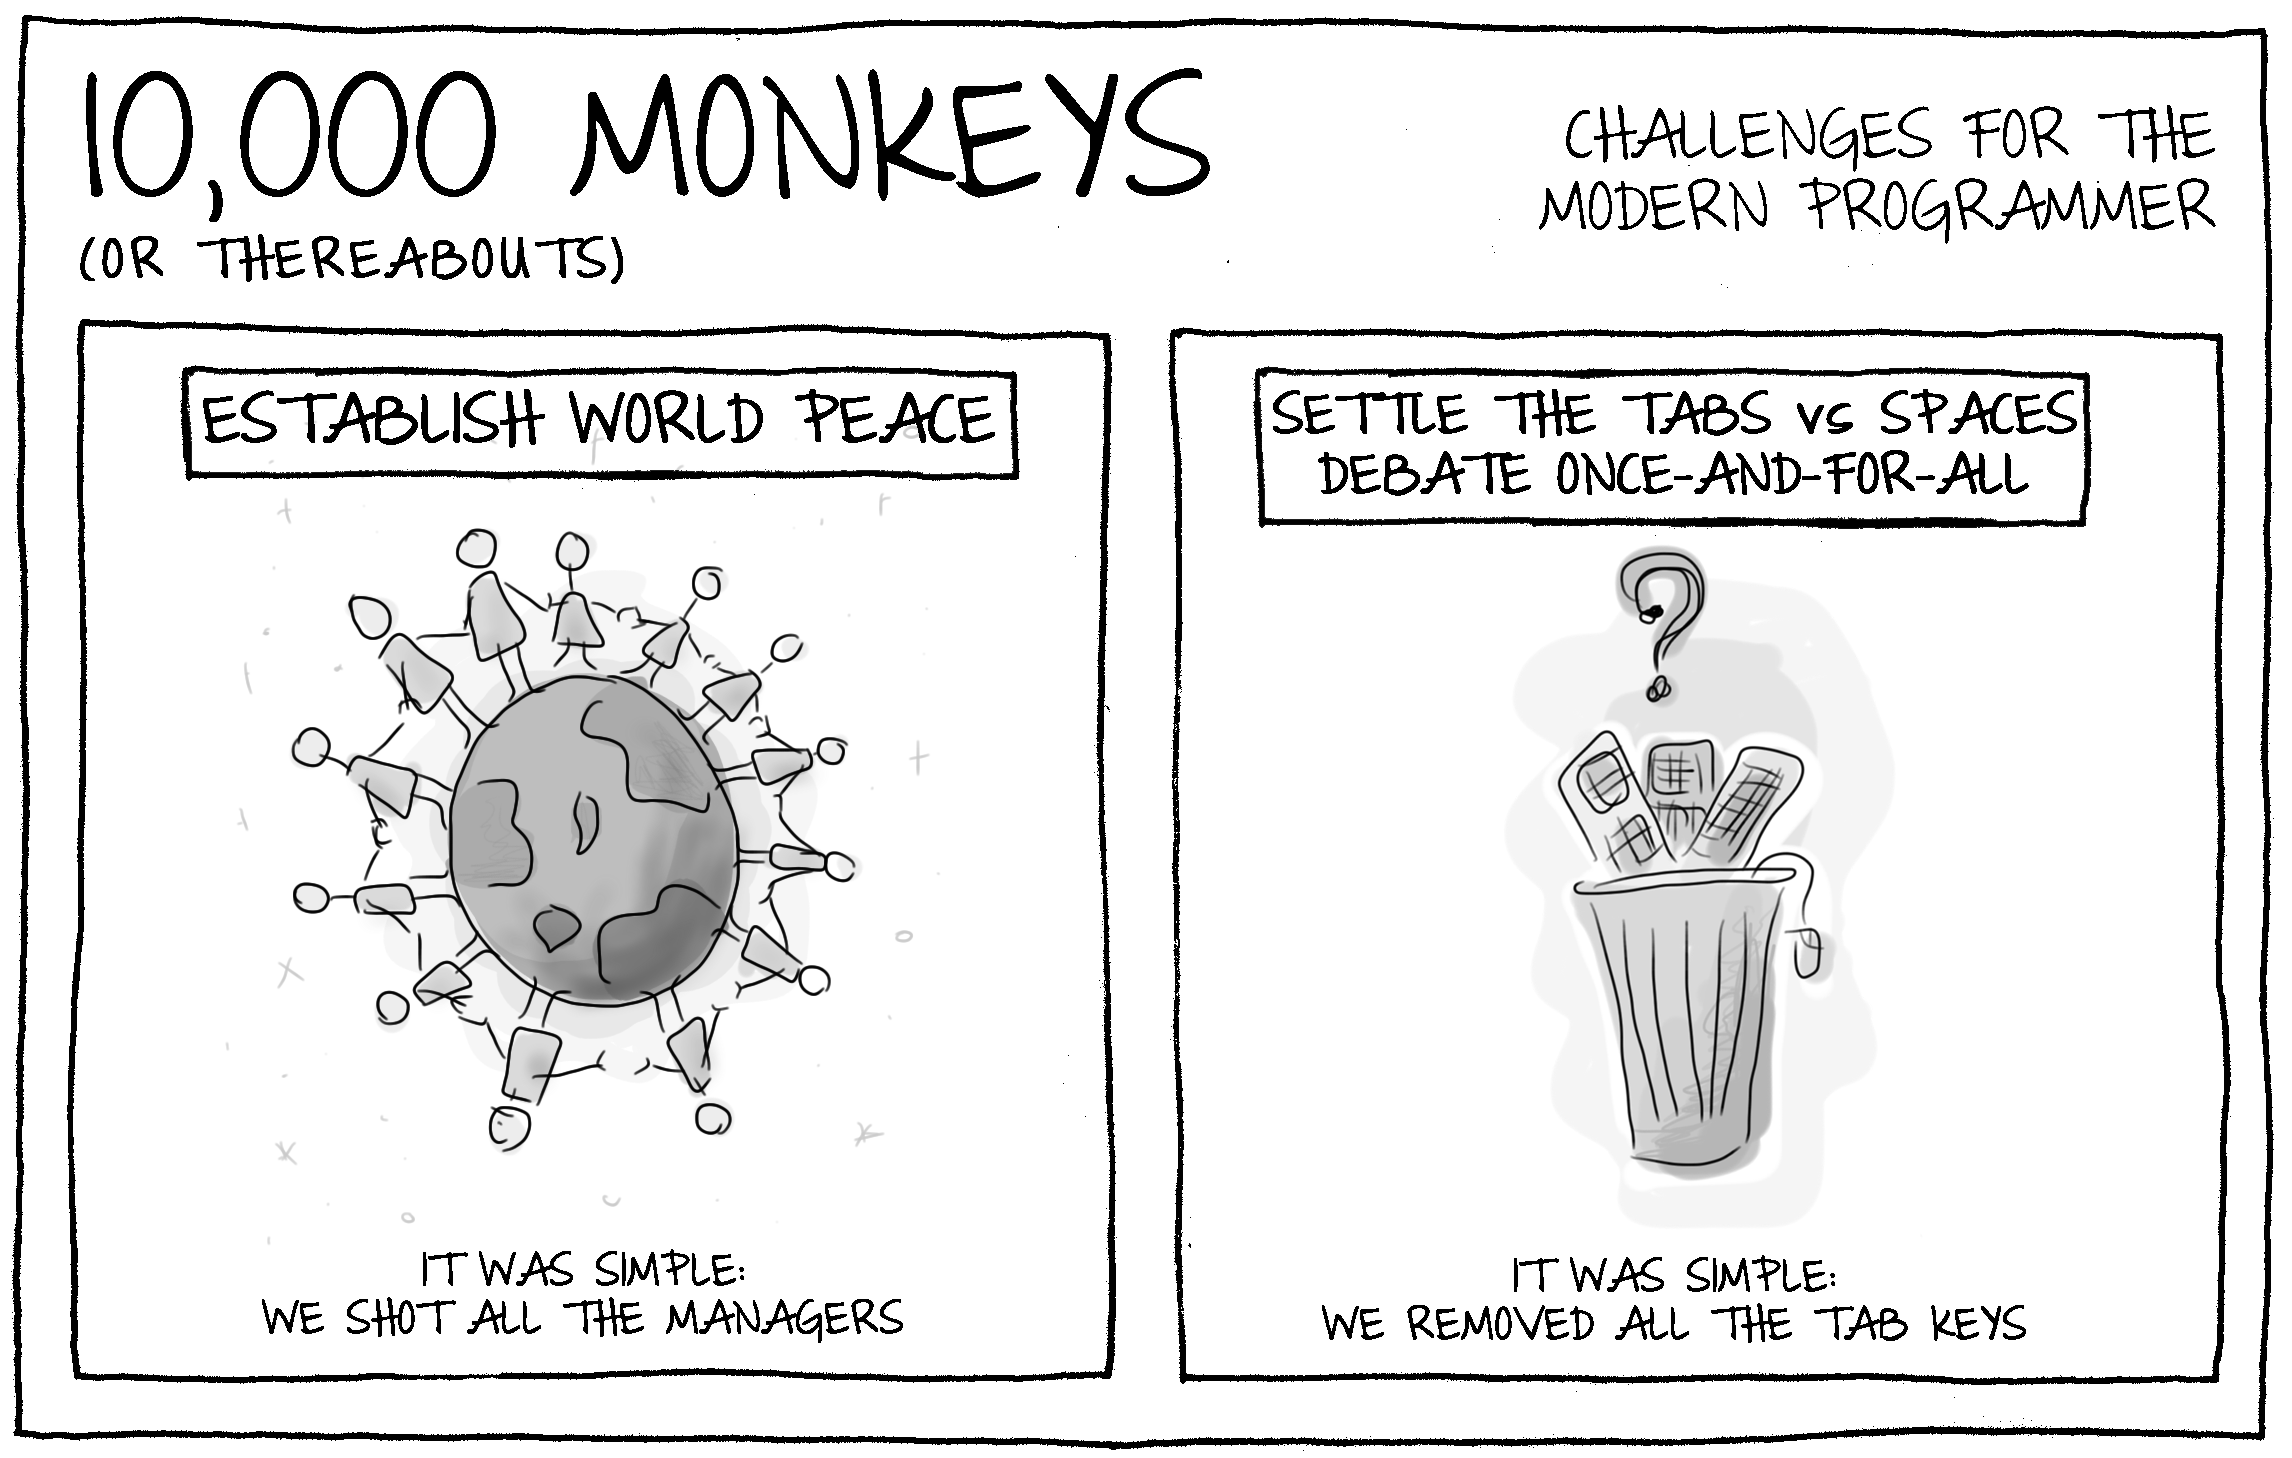 10,000 MONKEYS
(OR THEREABOUTS)
CHALLENGES FOR THE
MODERN PROGRAMMER
ESTABLISH WORLD PEACE
IT WAS SIMPLE:
WE SHOT ALL THE MANAGERS
SETTLE THE TABS vs SPACES
DEBATE ONCE-AND-FOR-ALL
IT WAS SIMPLE:
WE REMOVED ALL THE TAB KEYS